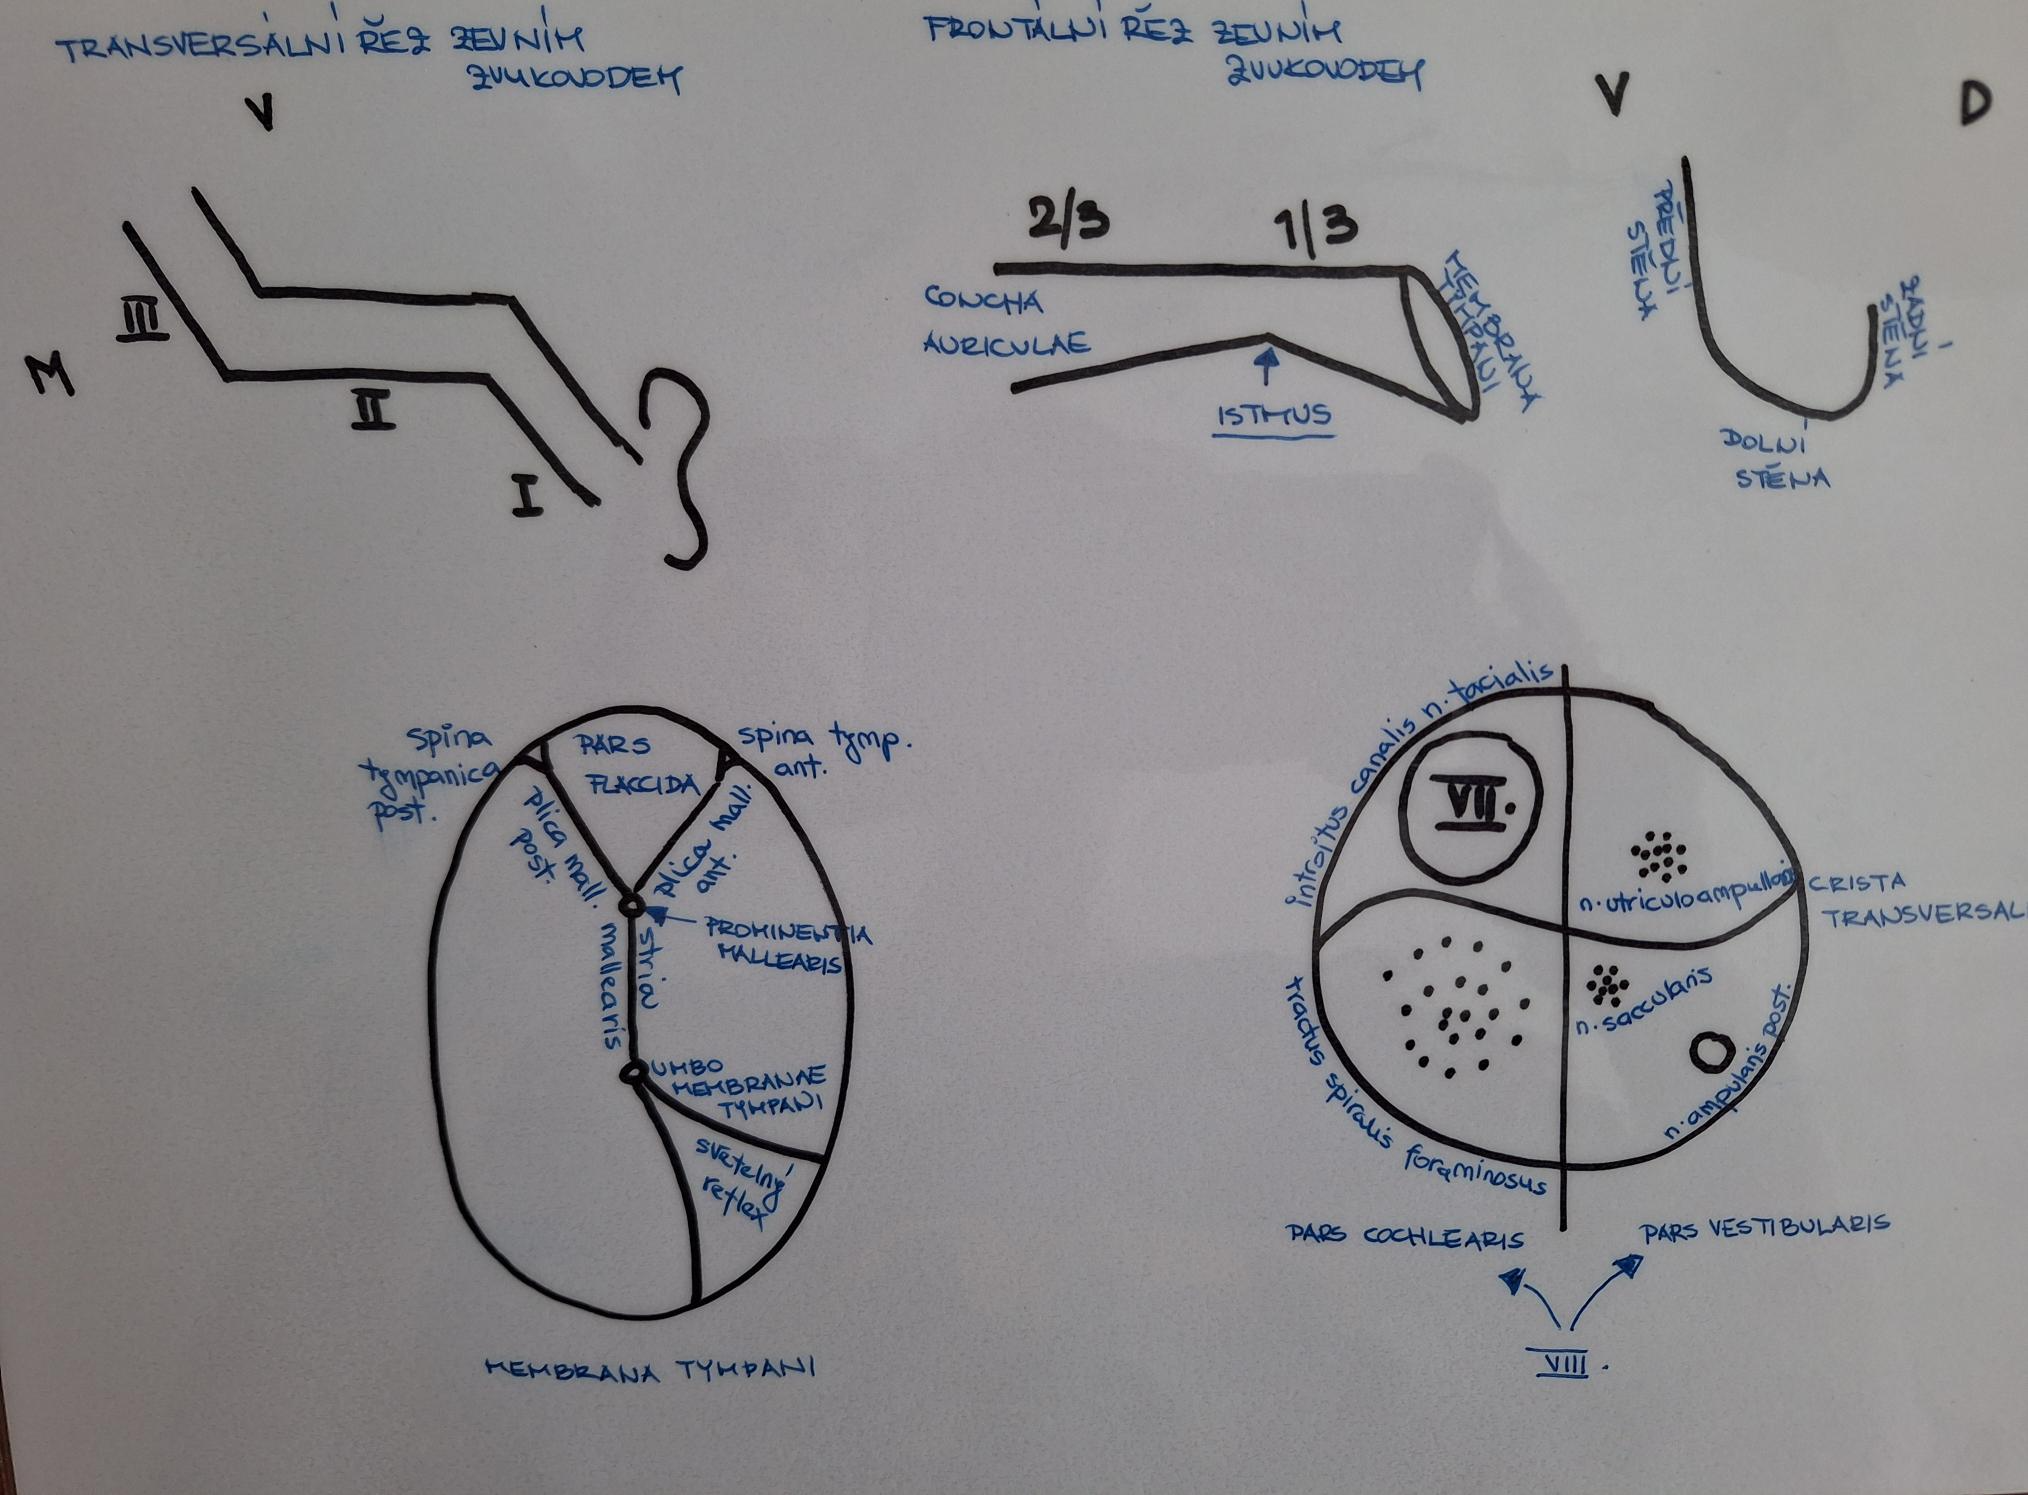 TRANSVERSÁLNÍ ŘEZ ZEVNÍM
ZVUKOVODEM
V
III
M
II
I
FRONTÁLNÍ ŘEZ ZEVNÍM
ZVUKOVODEM
2/3
1/3
CONCHA
AURICULAE
ISTMUS
MEMBRANA
TYMPANI
V
D
PŘEDNÍ
STĚNA
ZADNÍ
STĚNA
DOLNÍ
STĚNA
spina
tympanica
post.
PARS
FLACCIDA
spina tymp.
ant.
plica mall.
post.
plica mall.
ant.
PROMINENTIA
MALLEARIS
stria
mallearis
UMBO
MEMBRANAE
TYMPANI
svetelný
reflex
MEMBRANA TYMPANI
introitus canalis n. facialis
VII.
n. utriculoampullaris
CRISTA
TRANSVERSALI
n. saccularis
n. ampularis post.
tractus spiralis foraminosus
PARS COCHLEARIS
PARS VESTIBULARIS
VIII.